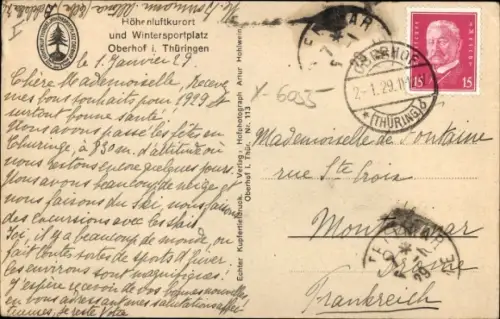 Höhenluftkurort
und Wintersportplatz
Oberhof i. Thüringen
le 1. Janvier 29.
Chère Mademoiselle, Recevez
mes bons souhaits pour 1929 et
surtout bonne santé.
Nous avons passé les fêtes en
Thuringe, à 830m. d'altitude où
nous restons encore quelques jours.
Nous avons beaucoup de neige et
nous faisons du ski, nous faisons
des excursions avec les skis.
Ici, il y a beaucoup de monde, on
fait toutes sortes de sports d'hiver.
Les environs sont magnifiques!
J'espère recevoir de vos bonnes nouvelles,
en vous adressant mes salutations
je reste Votre
Echter Kupfertiefdruck. Verlag: Hofphotograph Artur Hohlwein
Oberhof i. Thür. Nr. 113
X-6035
Deutsches Reich
15 15
OBERHOF
2.-1.29.11
*(THÜRING.)
Mademoiselle de Fontaine
rue Ste Croix
Montélimar
Drôme
Frankreich